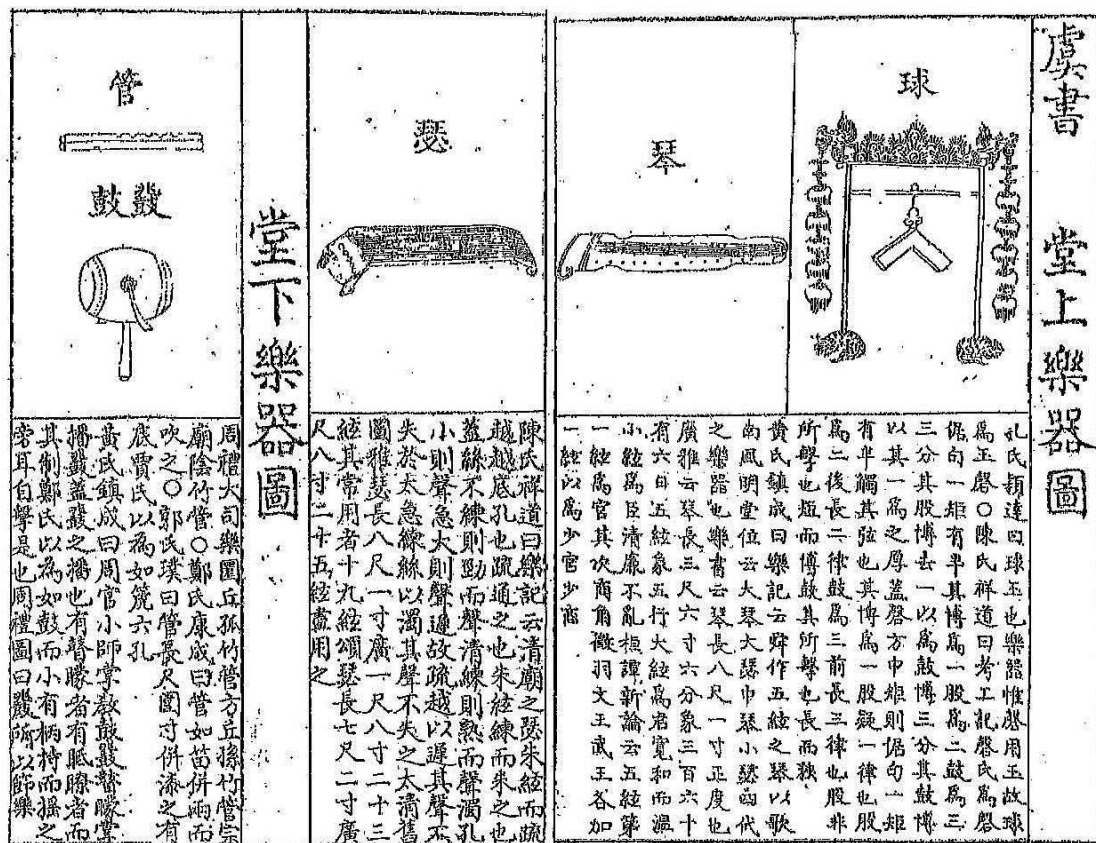 虞書
堂上樂器圖
球
琴
孔氏穎達曰球玉也樂器惟磬用玉故球
為玉磬○陳氏祥道曰考工記磬氏為磬
倨句一矩有半其博為一股為二鼓為三
三分其股博去一以為鼓博三分其鼓博
以其一為之厚蓋磬方中矩則倨句一矩
有半觸其弦也其博為一股疑一律也股
為二後長二律鼓為三前長三律也股非
所擊也短而博鼓其所擊也長而狹
黄氏鎮成曰樂記云舜作五絃之琴以歌
南風明堂位云大琴大瑟中琴小瑟四代
之樂器也樂書云琴長八尺一寸正度也
廣雅云琴長三尺六寸六分象三百六十
有六日五絃象五行大絃為君寬和而溫
小絃為臣清廉不亂桓譚新論云五絃第
一絃為宮其次商角徵羽文王武王各加
一絃以為少宮少商
瑟
陳氏祥道曰樂記云清廟之瑟朱絃而疏
越越底孔也疏通之也朱絃練而朱之也
蓋絲不練則勁而聲清練則熟而聲濁孔
小則聲急大則聲遲故疏越以遲其聲不
失於太急練絲以濁其聲不失之太清舊
圖雅瑟長八尺一寸廣一尺八寸二十三
絃其常用者十九絃頌瑟長七尺二寸廣
尺八寸二十五絃盡用之
堂下樂器圖
管
鼗鼓
周禮大司樂圜丘孤竹管方丘孫竹管宗
廟陰竹管○鄭氏康成曰管如笛併兩而
吹之○郭氏璞曰管長尺圍寸併漆之有
底賈氏以為如篪六孔
黄氏鎮成曰周官小師掌教鼓鼗瞽矇掌
播鼗蓋鼗之播也有瞽矇者有眡瞭者而
其制鄭氏以為如鼓而小有柄持而搖之
旁耳自擊是也周禮圖曰鼗所以節樂